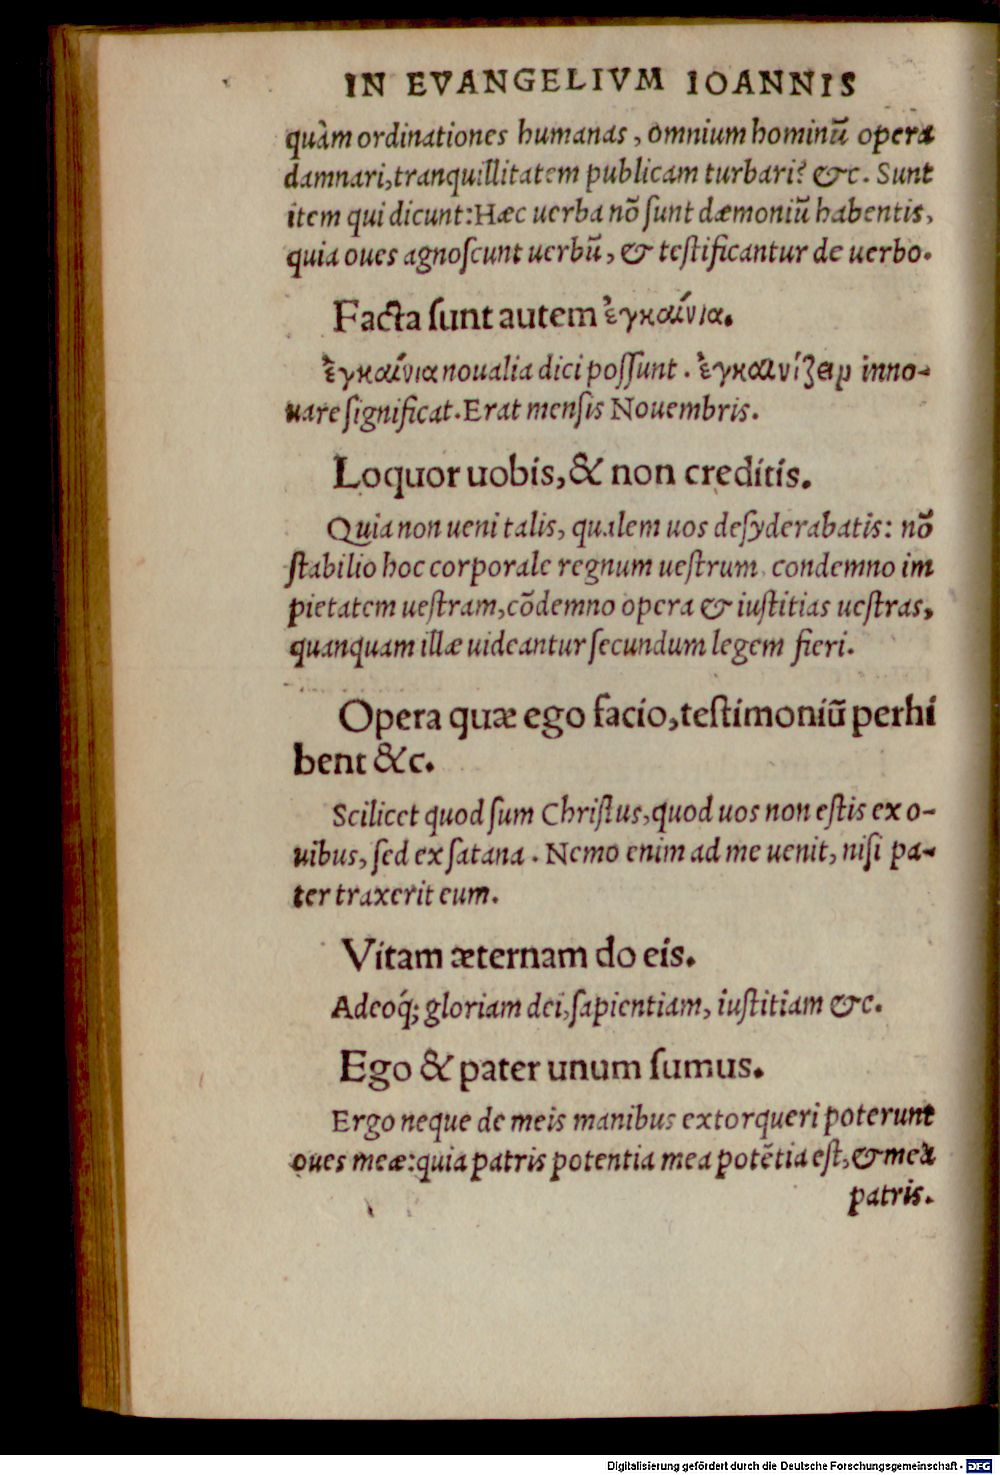 IN EVANGELIVM IOANNIS
quàm ordinationes humanas, omnium hominū opera
damnari, tranquillitatem publicam turbari? &c. Sunt
item qui dicunt: Hæc uerba nō ſunt dæmoniū habentis,
quia oues agnoſcunt uerbū, & teſtificantur de uerbo.
Facta ſunt autem ἐγκαίνια.
ἐγκαίνια noualia dici poſſunt. ἐγκαινίζειν inno-
uare ſignificat. Erat menſis Nouembris.
Loquor uobis, & non creditis.
Quia non ueni talis, qualem uos deſyderabatis: nō
ſtabilio hoc corporale regnum ueſtrum, condemno im
pietatem ueſtram, cōdemno opera & iuſtitias ueſtras,
quanquam illæ uideantur ſecundum legem fieri.
Opera quæ ego facio, teſtimoniū perhi
bent &c.
Scilicet quod ſum Chriſtus, quod uos non eſtis ex o-
uibus, ſed ex ſatana. Nemo enim ad me uenit, niſi pa-
ter traxerit eum.
Vitam æternam do eis.
Adeoq́; gloriam dei, ſapientiam, iuſtitiam &c.
Ego & pater unum ſumus.
Ergo neque de meis manibus extorqueri poterunt
oues meæ: quia patris potentia mea potētia eſt, & mea
patris.
Digitalisierung gefördert durch die Deutsche Forschungsgemeinschaft - DFG